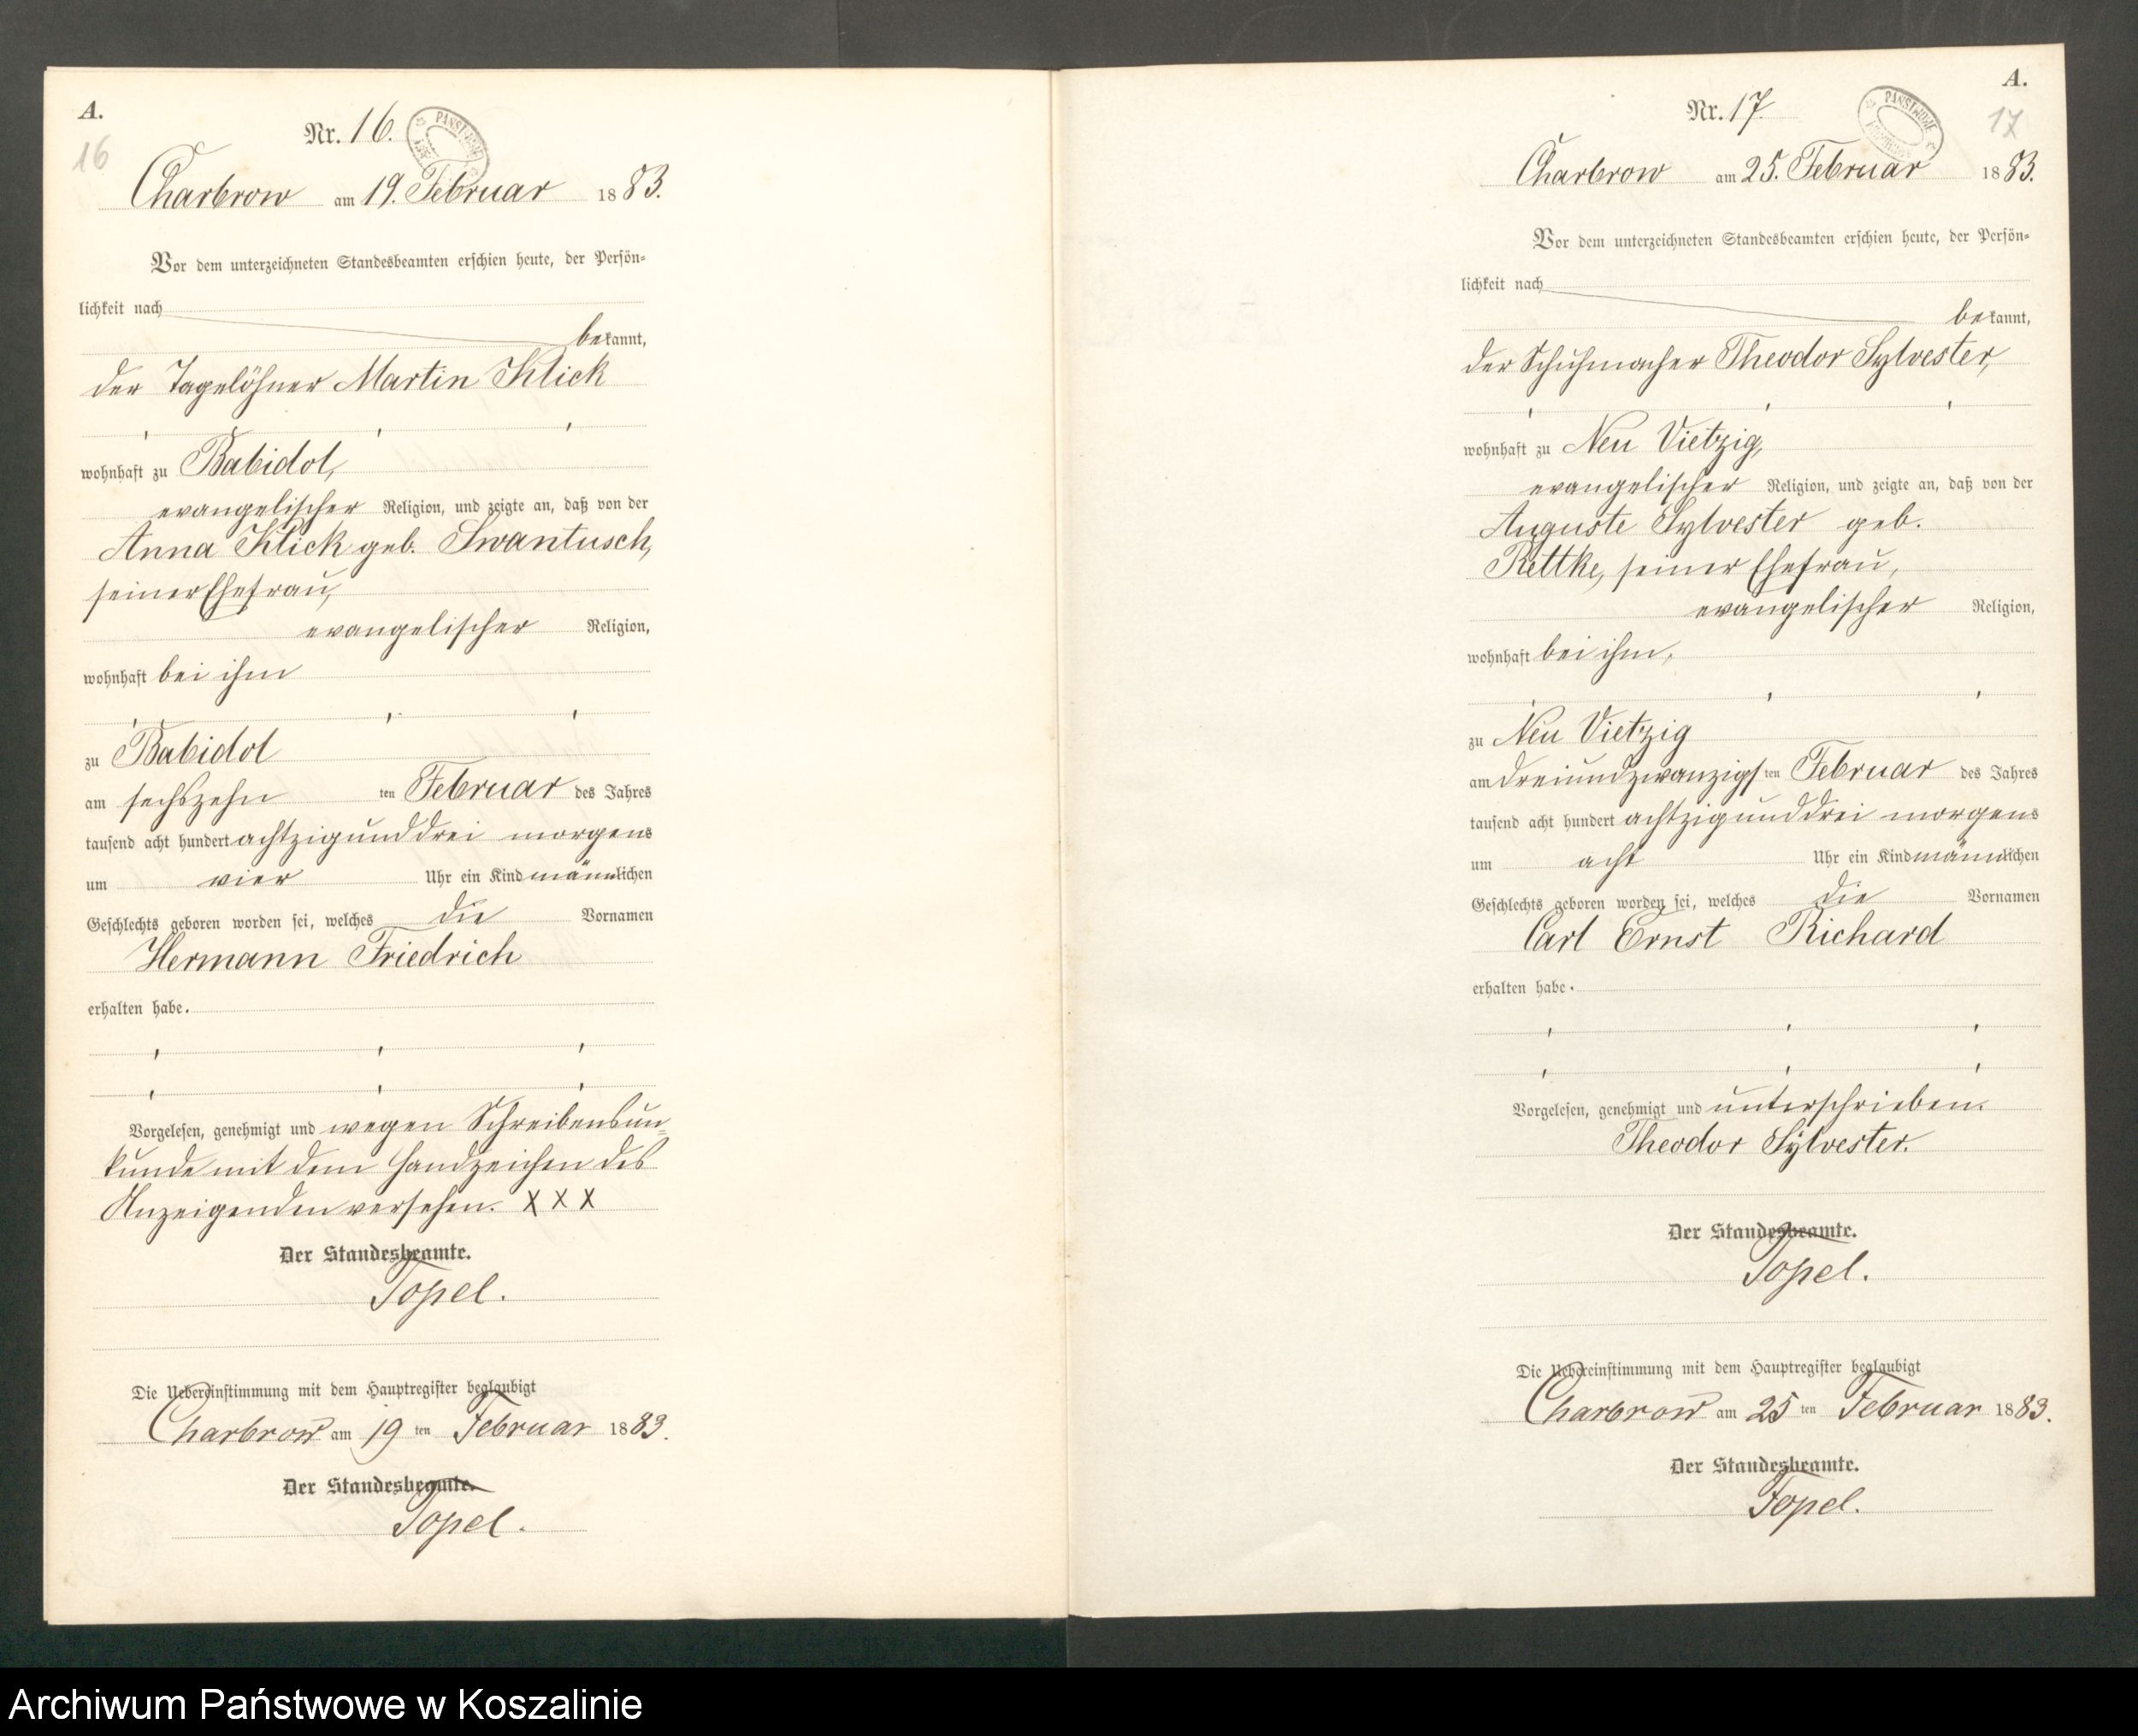 A.
16
Nr. 16.
Charbrow am 19. Februar 1883.
Vor dem unterzeichneten Standesbeamten erschien heute, der Persön-
lichkeit nach
bekannt,
der Tagelöhner Martin Klick
wohnhaft zu Babidol,
evangelischer Religion, und zeigte an, daß von der
Anna Klick geb. Swantusch,
seiner Ehefrau,
evangelischer Religion,
wohnhaft bei ihm
zu Babidol
am sechszehn ten Februar des Jahres
tausend acht hundert achtzig und drei morgens
um vier Uhr ein Kind männlichen
Geschlechts geboren worden sei, welches die Vornamen
Hermann Friedrich
erhalten habe.
Vorgelesen, genehmigt und wegen Schreibensun-
kunde mit dem Handzeichen des
Anzeigenden versehen. XXX
Der Standesbeamte.
Topel.
Die Uebereinstimmung mit dem Hauptregister beglaubigt
Charbrow am 19 ten Februar 1883.
Der Standesbeamte.
Topel.
A.
17
Nr. 17.
Charbrow am 25. Februar 1883.
Vor dem unterzeichneten Standesbeamten erschien heute, der Persön-
lichkeit nach
bekannt,
der Schuhmacher Theodor Sylvester,
wohnhaft zu Neu Vietzig,
evangelischer Religion, und zeigte an, daß von der
Auguste Sylvester geb.
Rettke, seiner Ehefrau,
evangelischer Religion,
wohnhaft bei ihm,
zu Neu Vietzig
am dreiundzwanzigs ten Februar des Jahres
tausend acht hundert achtzig und drei morgens
um acht Uhr ein Kind männlichen
Geschlechts geboren worden sei, welches die Vornamen
Carl Ernst Richard
erhalten habe.
Vorgelesen, genehmigt und unterschrieben.
Theodor Sylvester.
Der Standesbeamte.
Topel.
Die Uebereinstimmung mit dem Hauptregister beglaubigt
Charbrow am 25 ten Februar 1883.
Der Standesbeamte.
Topel.
Archiwum Państwowe w Koszalinie